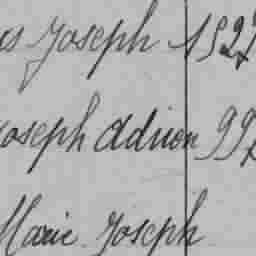 Joseph 1527
Joseph Adrien 99
Marie Joseph